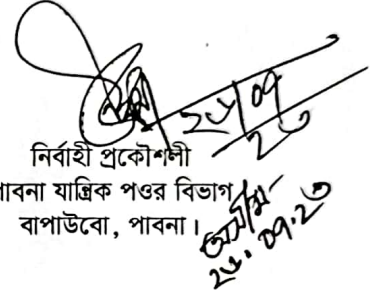 ২৬/০৭
২৩
নির্বাহী প্রকৌশলী
পাবনা যান্ত্রিক পওর বিভাগ
বাপাউবো, পাবনা।
২৬.০৭.২৩